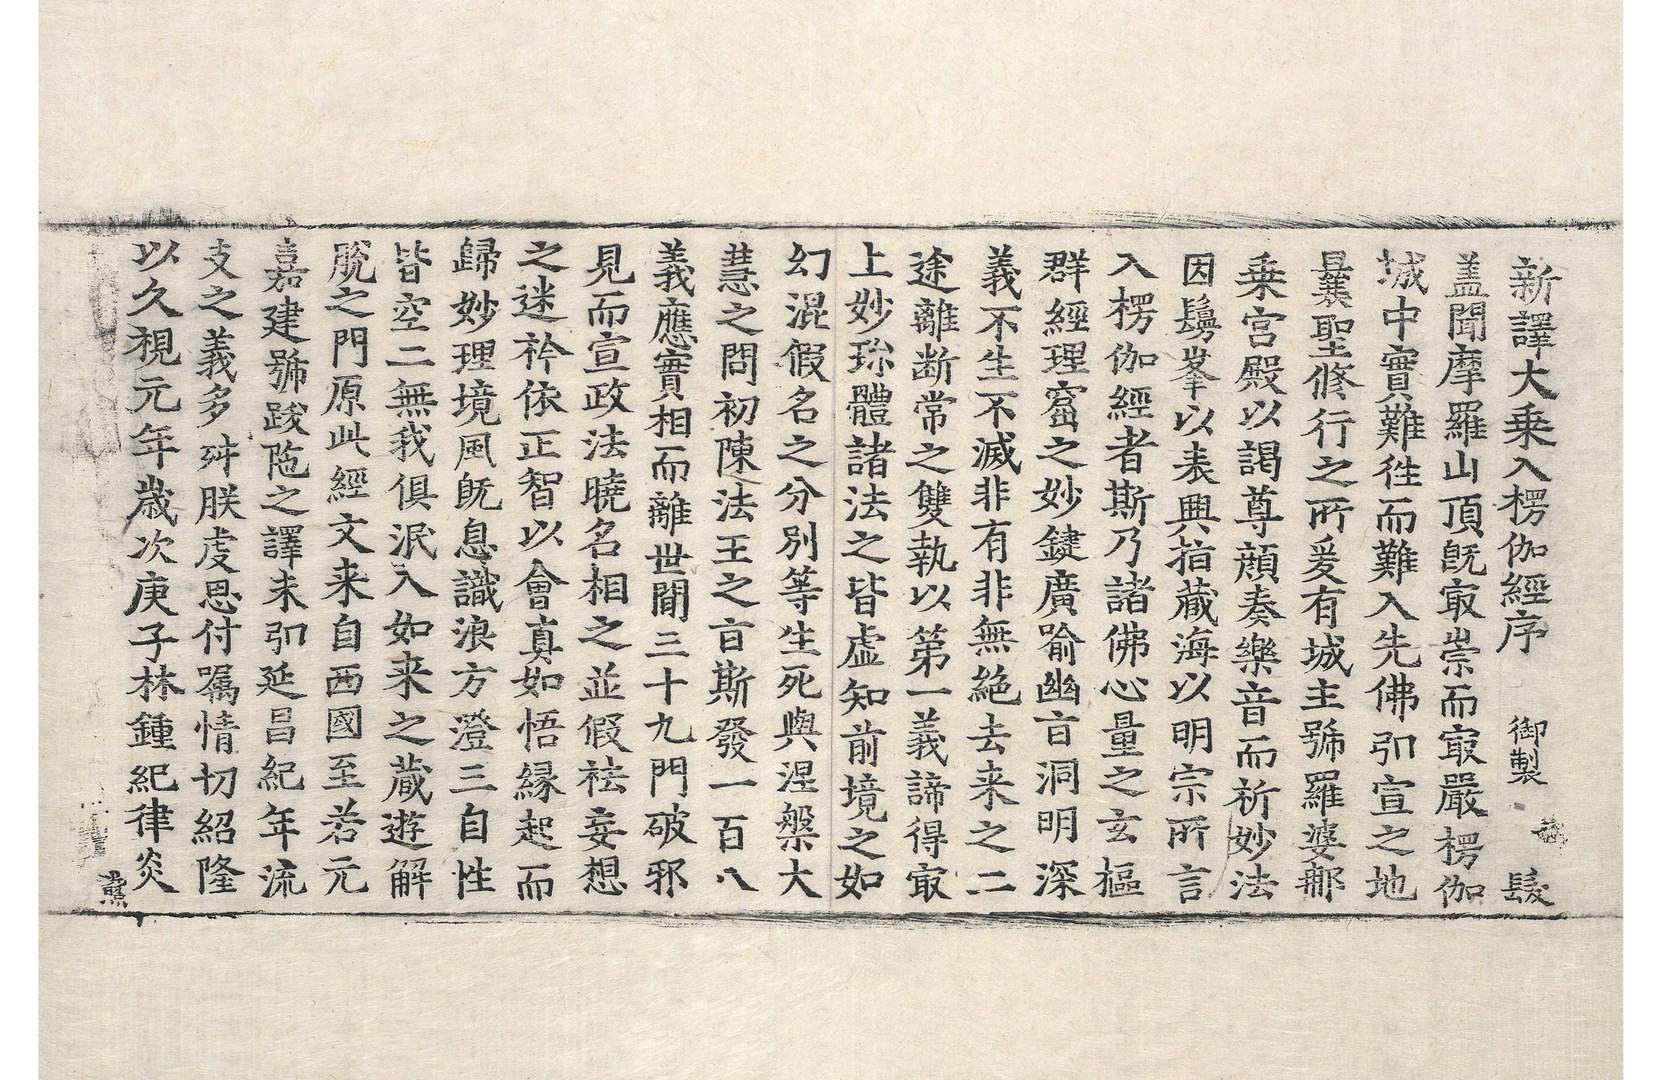 新譯大乗入楞伽經序 御製 髮
盖聞摩羅山頂旣㝡崇而㝡嚴楞伽
城中實難徃而難入先佛弘宣之地
曩聖修行之所爰有城主號羅婆那
乗宮殿以謁尊顔奏樂音而祈妙法
因鬘峯以表興指藏海以明宗所言
入楞伽經者斯乃諸佛心量之玄樞
群經理窟之妙鍵廣喻幽旨洞明深
義不生不滅非有非無絶去来之二
途離断常之雙執以第一義諦得㝡
上妙珎體諸法之皆虚知前境之如
幻混假名之分別等生死與涅槃大
慧之問初陳法王之旨斯發一百八
義應實相而離世間三十九門破邪
見而宣政法曉名相之並假袪妄想
之迷衿依正智以會真如悟縁起而
歸妙理境風旣息識浪方澄三自性
皆空二無我俱泯入如来之藏遊解
脫之門原此經文来自西國至若元
嘉建號跋陁之譯未弘延昌紀年流
支之義多舛朕虔恩付囑情切紹隆
以久視元年歲次庚子林鍾紀律炎